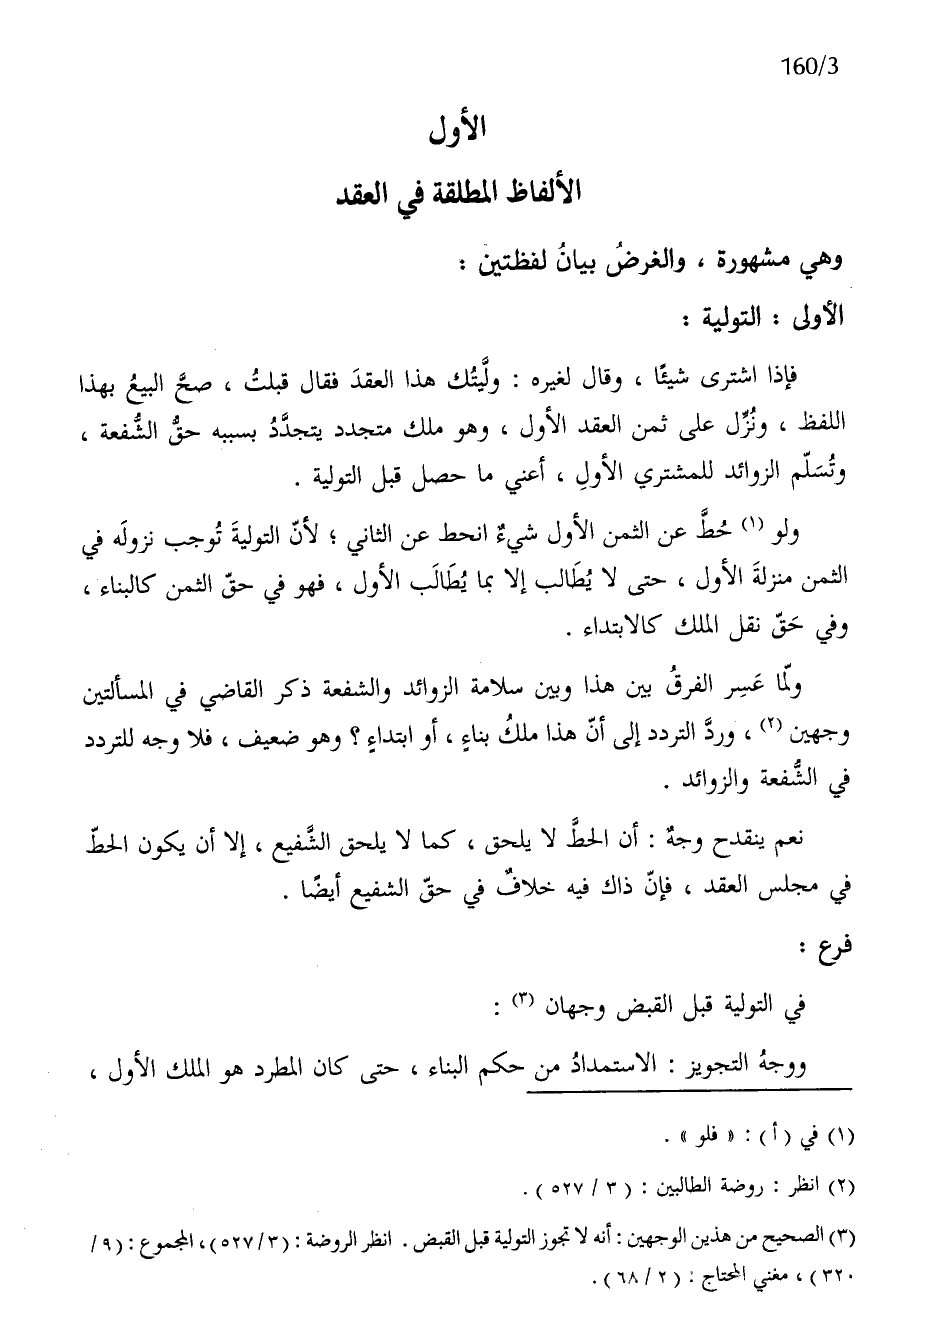 160/3
الأول
الألفاظ المطلقة في العقد
وهي مشهورة ، والغرضُ بيانُ لفظتين :
الأولى : التولية :
فإذا اشترى شيئًا ، وقال لغيره : ولَّيتُك هذا العقدَ فقال قبلتُ ، صحَّ البيعُ بهذا
اللفظ ، ونُزِّل على ثمن العقد الأول ، وهو ملك متجدد يتجدَّدُ بسببه حقُّ الشُّفعة ،
وتُسَلّم الزوائد للمشتري الأولِ ، أعني ما حصل قبل التولية .
ولو (١) حُطَّ عن الثمن الأول شيءٌ انحط عن الثاني ؛ لأنّ التوليةَ تُوجب نزولَه في
الثمن منزلةَ الأول ، حتى لا يُطَالب إلا بما يُطَالَب الأول ، فهو في حقّ الثمن كالبناء ،
وفي حَقّ نقل الملك كالابتداء .
ولمّا عَسِر الفرقُ بين هذا وبين سلامة الزوائد والشفعة ذكر القاضي في المسألتين
وجهين (٢) ، وردَّ التردد إلى أنّ هذا ملكُ بناءٍ ، أو ابتداءٍ ؟ وهو ضعيف ، فلا وجه للتردد
في الشُّفعة والزوائد .
نعم ينقدح وجهٌ : أن الحطَّ لا يلحق ، كما لا يلحق الشَّفيع ، إلا أن يكون الحطّ
في مجلس العقد ، فإنّ ذاك فيه خلافٌ في حقّ الشفيع أيضًا .
فرع :
في التولية قبل القبض وجهان (٣) :
ووجهُ التجويز : الاستمدادُ من حكم البناء ، حتى كان المطرد هو الملك الأول ،
(١) في ( أ ) : « فلو » .
(٢) انظر : روضة الطالبين : ( ٣ / ٥٢٧ ) .
(٣) الصحيح من هذين الوجهين : أنه لا تجوز التولية قبل القبض . انظر الروضة : (٣/ ٥٢٧) ، المجموع : ( ٩ /
٣٢٠ ) ، مغني المحتاج : ( ٢ / ٦٨ ) .